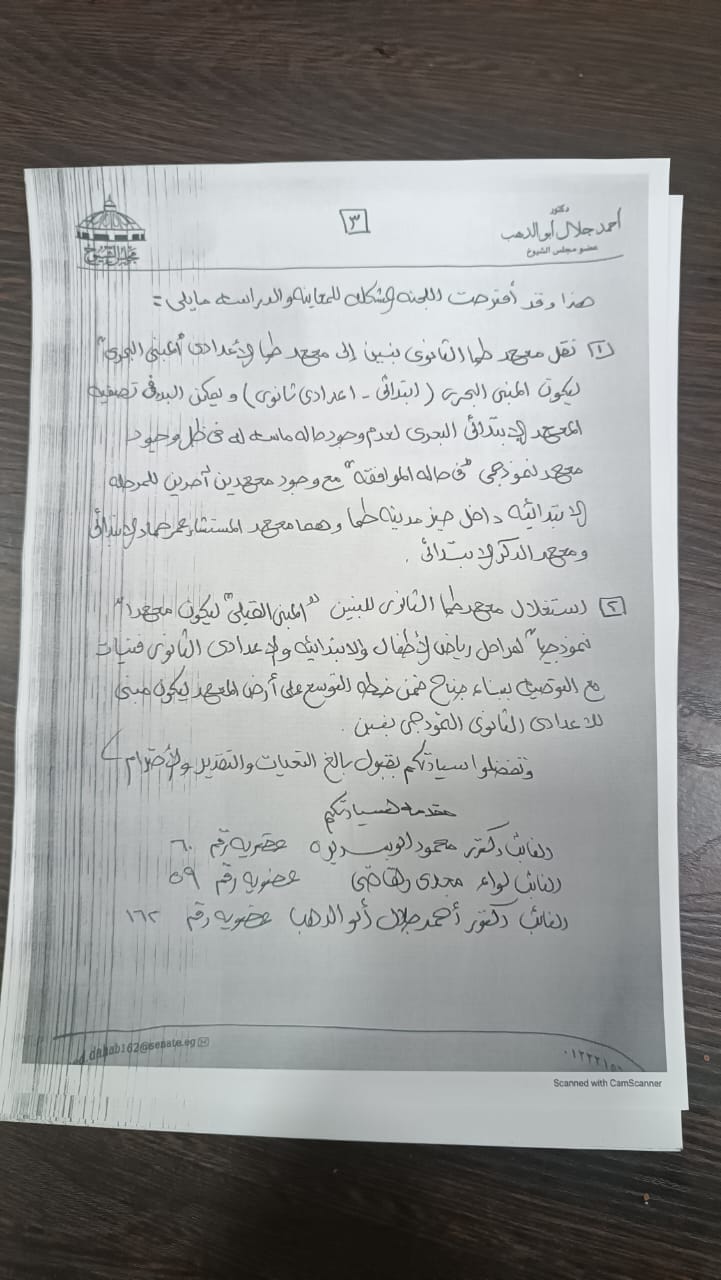 دكتور
أحمد جلال أبو الدهب
عضو مجلس الشيوخ
٣
مجلس الشيوخ
هذا وقد أقترحت اللجنه المشكله للمعاينه والدراسه مايلى :=
١ نقل معهد طما الثانوى بنين إلى معهد طما الأعدادى "المبنى البحرى"
ليكون المبنى البحرى ( ابتدائى - اعدادى ثانوى ) ويمكن البدء فى تصفيه
المعهد الابتدائى البحرى لعدم وجود حاله ماسه له فى ظل وجود
معهد نموذجى "فى حاله الموافقه" مع وجود معهدين أخرين للمرحله
الابتدائيه داخل حيز مدينه طما وهما معهد المستشار عمر حماد الابتدائى
ومعهد الذكر الابتدائى .
٢ استغلال معهد طما الثانوى للبنين "المبنى القبلى" ليكون معهدا"
نموذجيا" لمراحل رياض الأطفال والابتدائيه والإعدادى الثانوى فتيات
مع التوصيه ببناء جناح ضمن خطه التوسع على أرض المعهد ليكون مبنى
للاعدادى الثانوى النموذجى بنين .
وتفضلوا سيادتكم بقبول بالغ التحيات والتقدير والأحترام
مقدمه لسيادتكم
النائب دكتور محمود أبو سديره عضويه رقم ٦٠
النائب لواء مجدى القاضى عضويه رقم ٥٩
النائب دكتور أحمد جلال أبو الدهب عضويه رقم ١٦٢
dahab162@senate.eg
Scanned with CamScanner